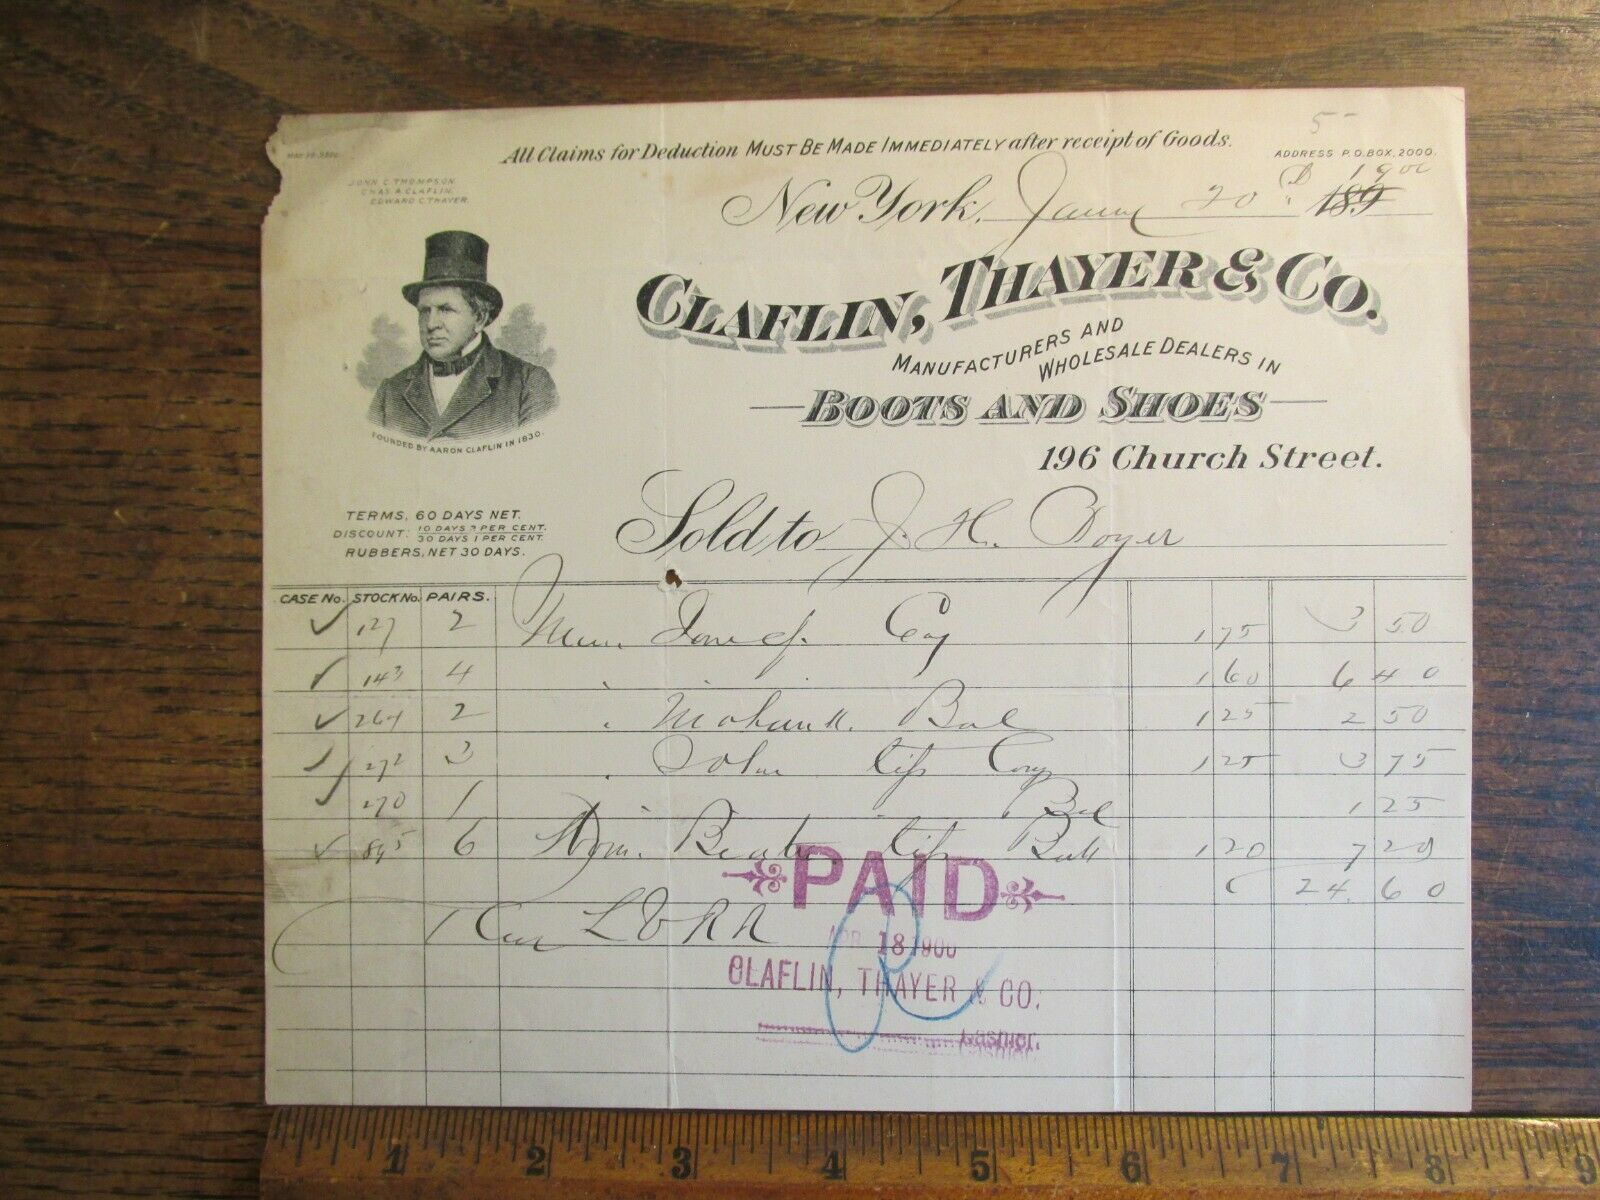 5-
All Claims for Deduction MUST BE MADE IMMEDIATELY after receipt of Goods.
ADDRESS P.O.BOX, 2000.
JOHN C THOMPSON.
CHAS A. CLAFLIN.
EDWARD C THAYER.
New York, 20 189 1900
CLAFLIN, THAYER & CO.
MANUFACTURERS AND
WHOLESALE DEALERS IN
BOOTS AND SHOES
196 Church Street.
FOUNDED BY AARON CLAFLIN IN 1830.
TERMS, 60 DAYS NET.
DISCOUNT: 10 DAYS 2 PER CENT.
30 DAYS 1 PER CENT.
RUBBERS, NET 30 DAYS.
Sold to J. H. Boyer
CASE No. STOCK No. PAIRS.
127 2 175 3 50
143 4 160 6 40
264 2 Mohawk Bal 125 2 50
272 3 tip Cong 125 3 75
270 1 Bal 1 25
895 6 tip 120 7 20
24.60
PAID
APR 18 1900
CLAFLIN, THAYER & CO.
Cashier.
1 2 3 4 5 6 7 8 9